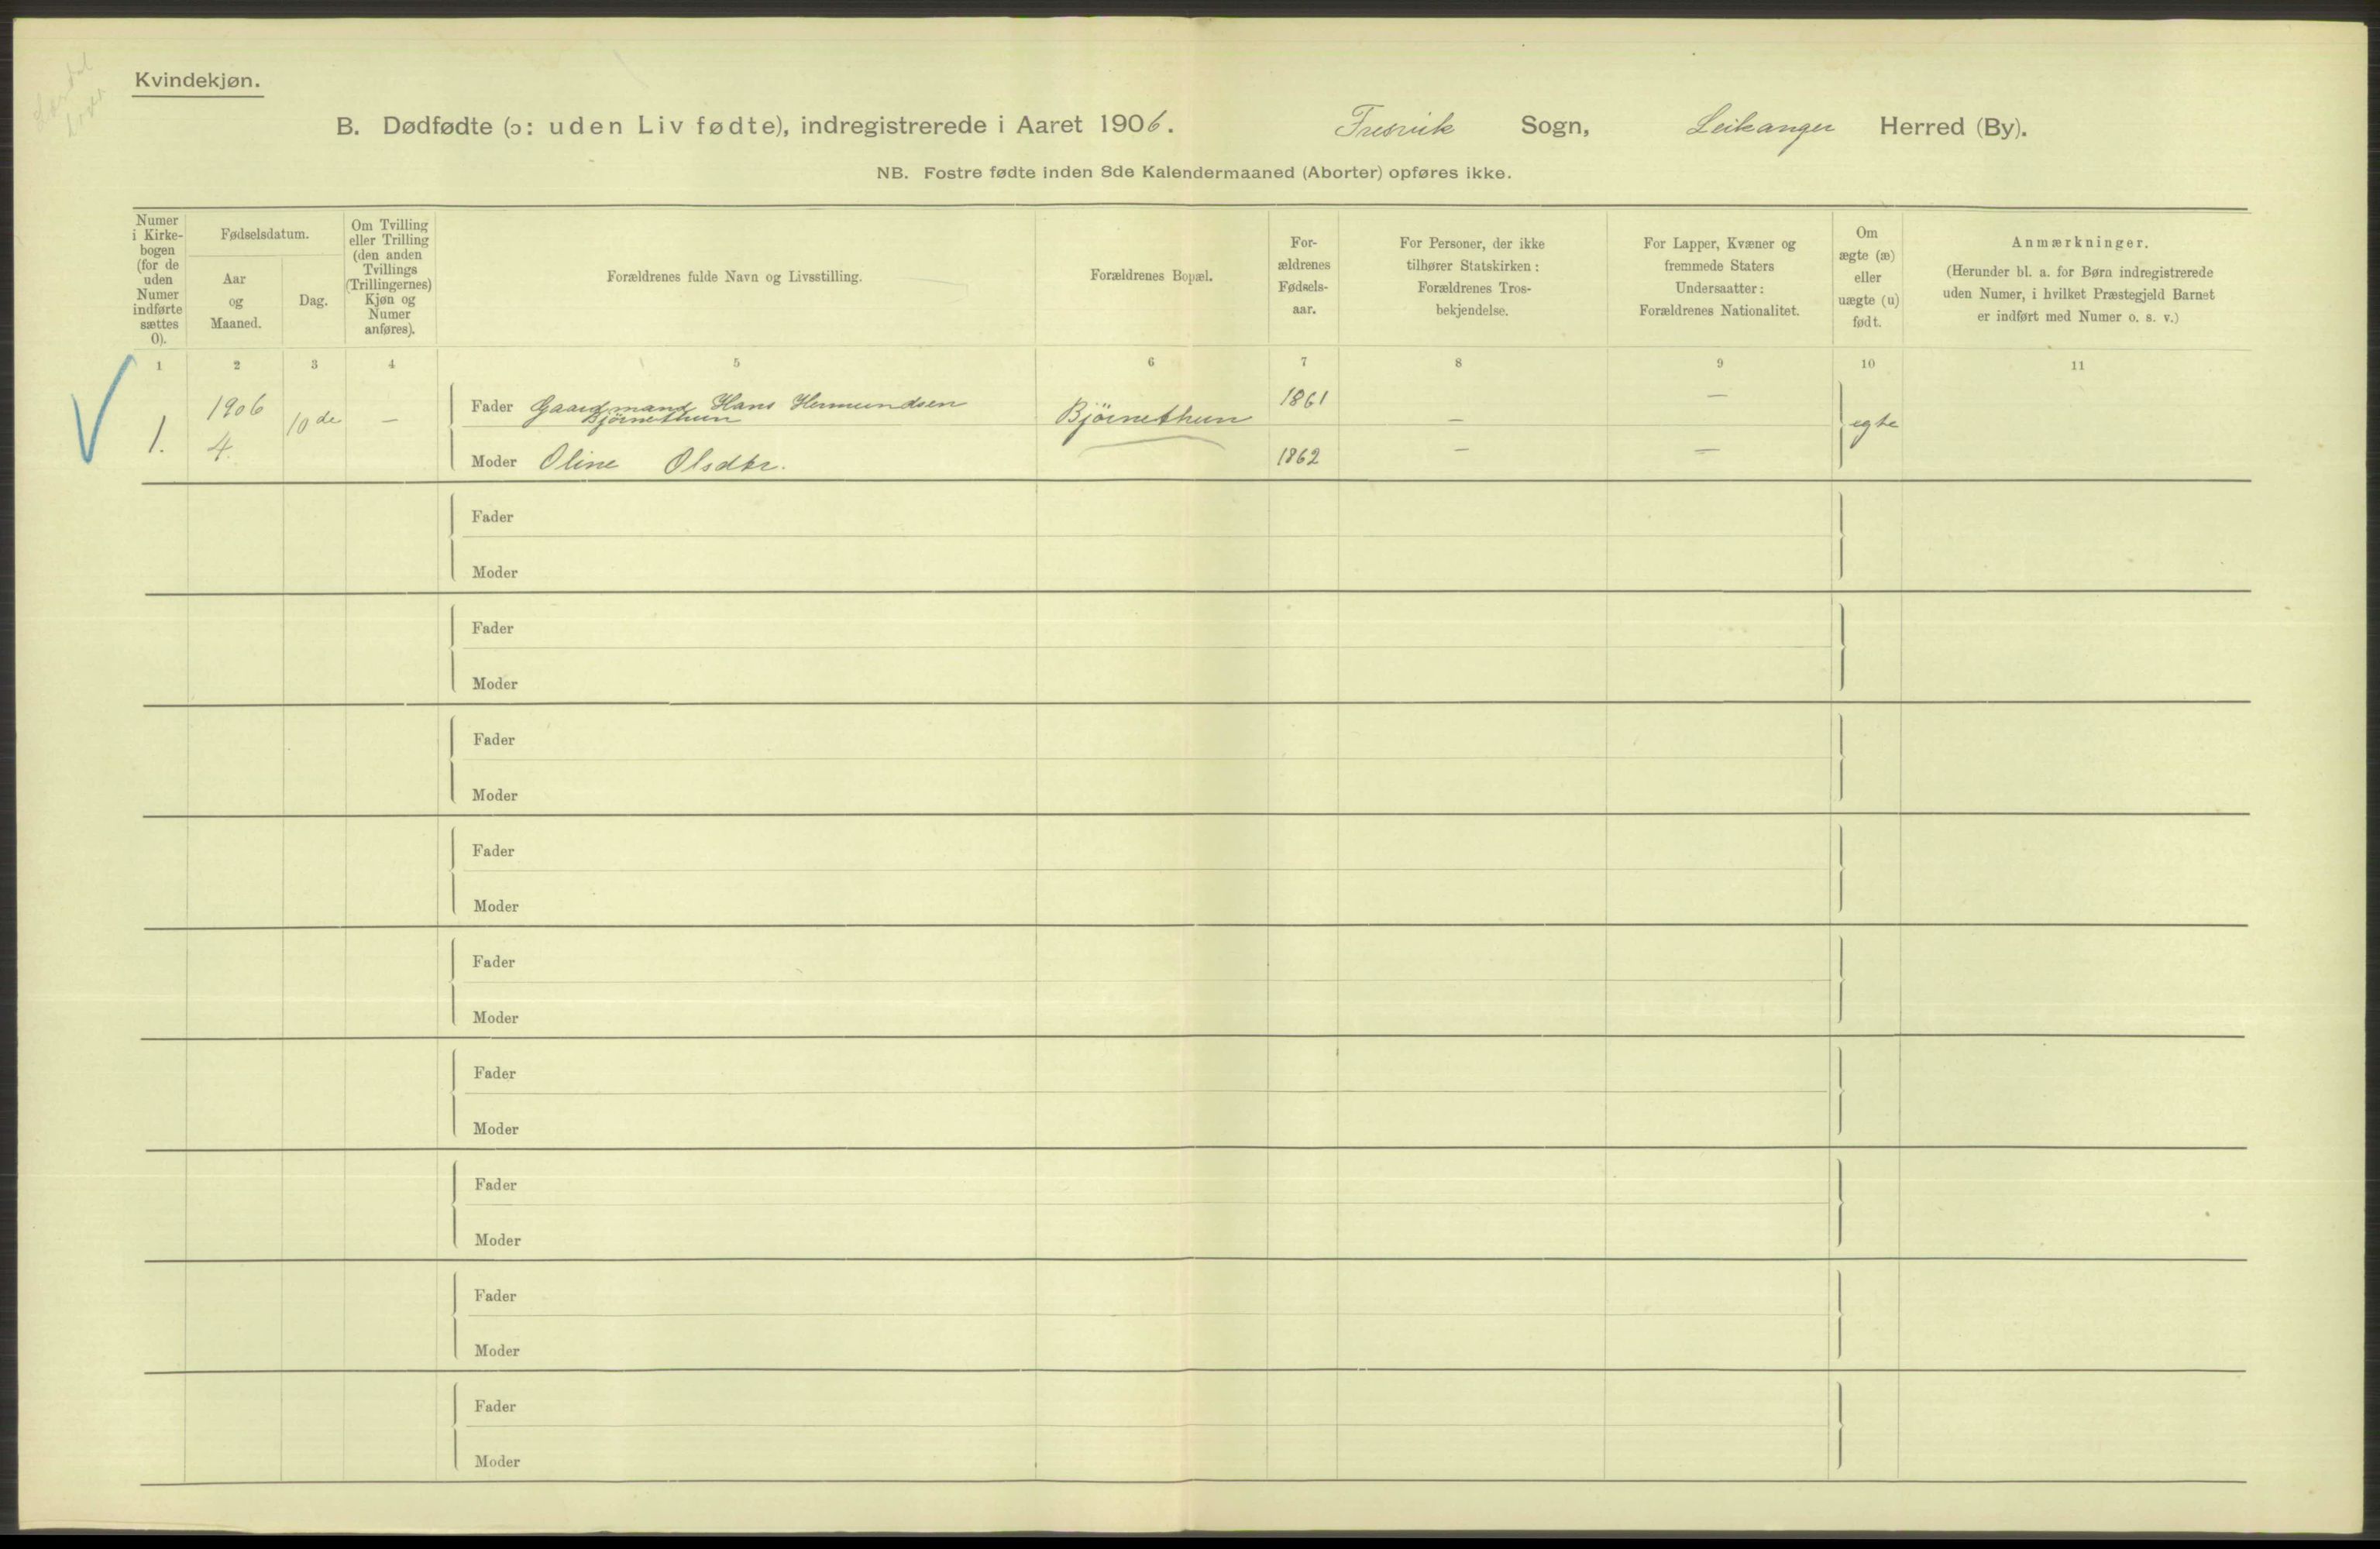 Kvindekjøn.
B. Dødfødte (ɔ: uden Liv fødte), indregistrerede i Aaret 1906. Fresvik Sogn, Leikanger Herred (By).
NB. Fostre fødte inden 8de Kalendermaaned (Aborter) opføres ikke.
Numer
i Kirke-
bogen
(for de
uden
Numer
indførte
sættes
0).
Fødselsdatum.
Aar
og
Maaned.
Dag.
Om Tvilling
eller Trilling
(den anden
Tvillings
(Trillingernes)
Kjøn og
Numer
anføres).
Forældrenes fulde Navn og Livsstilling.
Forældrenes Bopæl.
For-
ældrenes
Fødsels-
aar.
For Personer, der ikke
tilhører Statskirken:
Forældrenes Tros-
bekjendelse.
For Lapper, Kvæner og
fremmede Staters
Undersaatter:
Forældrenes Nationalitet.
Om
ægte (æ)
eller
uægte (u)
født.
Anmærkninger.
(Herunder bl. a. for Børn indregistrerede
uden Numer, i hvilket Præstegjeld Barnet
er indført med Numer o. s. v.)
1 2 3 4 5 6 7 8 9 10 11
1. 1906 4. 10de —
Fader Gaardmand Hans Hermundsen
Bjørnethun
Bjørnethun 1861 — —
Moder Oline Olsdtr. 1862 — —
egte
Fader
Moder
Fader
Moder
Fader
Moder
Fader
Moder
Fader
Moder
Fader
Moder
Fader
Moder
Fader
Moder
Fader
Moder